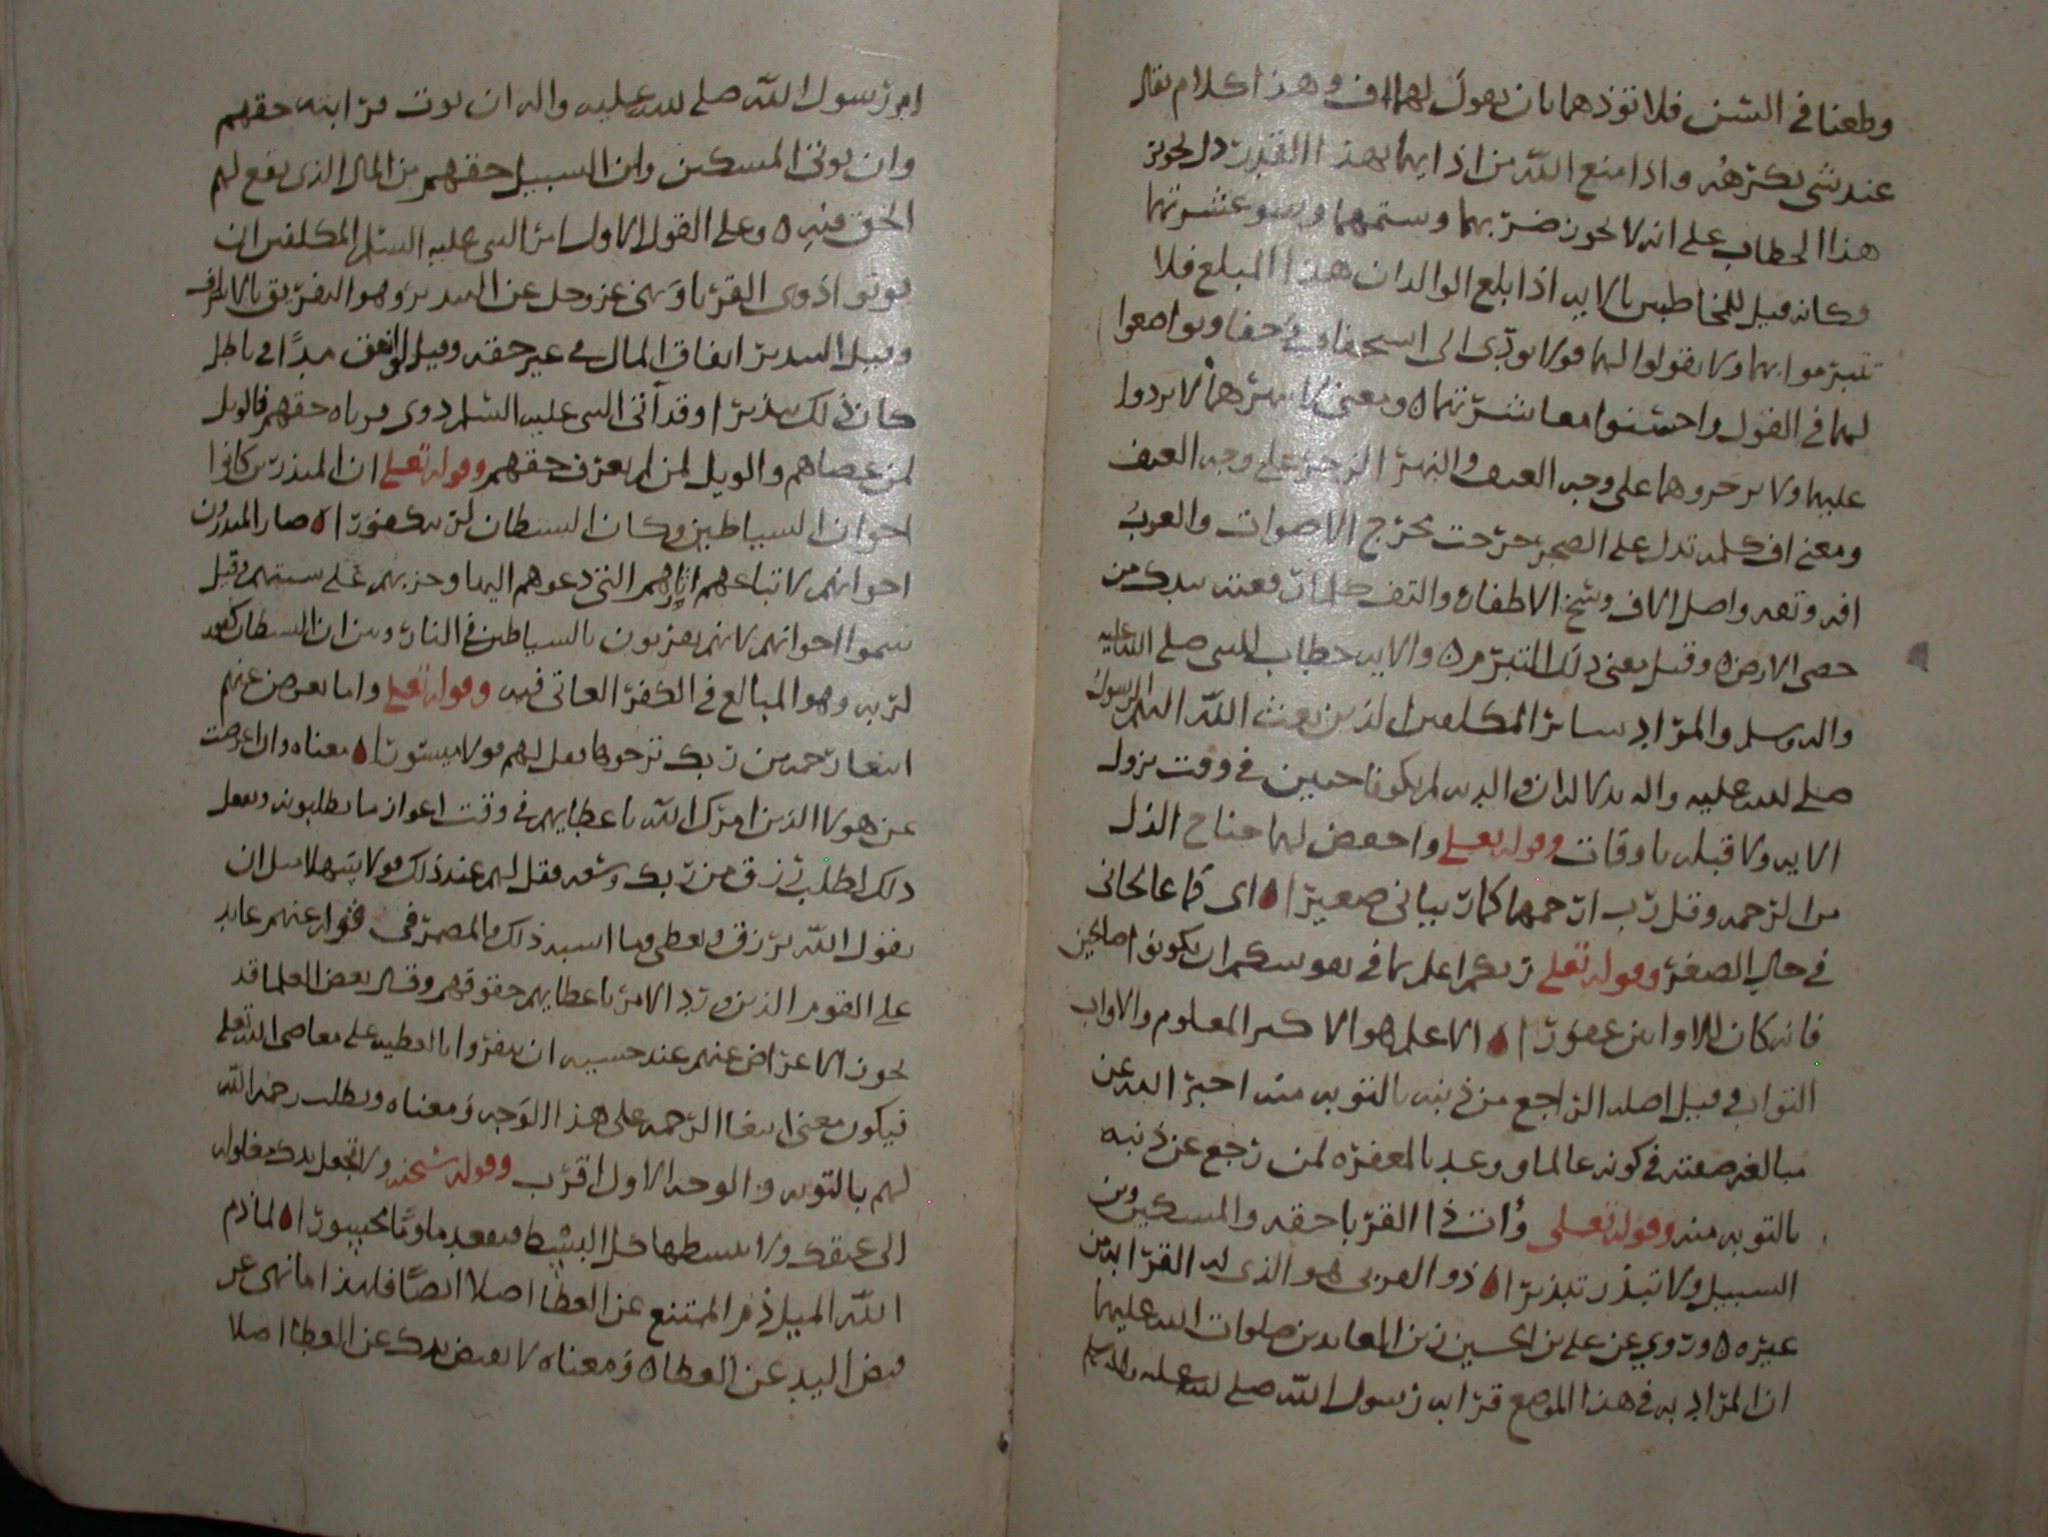 وطعنا في السن فلا تؤذهما بان يقول لهما اف وهذا كلام يقال
عند شي يكرهه واذا منع الله من اذايهما بهذا القدر دل بحوبز
هذا الخطاب على انه لا يجوز ضربهما وشتمهما وسو عشرتهما
وكانه قيل للمخاطبين بالايه اذا بلغ الوالدان هذا المبلغ فلا
تتبرموا بهما ولا تقولوا لهما قولا يودي الى استخفاف حقا وتواضعوا
لهما في القول واحسنوا معاشرتهما ه ومعنى لا تنهرهما لا تردوا
عليهما ولا تزجروهما على وجه العنف والنهر الزجر على وجه العنف
ومعنى اف كلمه تدل على الضجر خرجت مخرج الاصوات والعرب
افه وتفه واصل الاف وسخ الاظفار والتف كلما رفعته بيدك من
حصى الارض ه وقيل معنى ذلك التبرم ه والايه خطاب للنبي صلى الله عليه
واله وسلم والمراد سائر المكلفين الذين بعث الله اليهم الرسول
صلى الله عليه واله بدلا لان والديه لم يكونا حيين في وقت نزول
الايه ولا قبله باوقات وقوله تعلى واخفض لهما جناح الذل
من الرحمه وقل رب ارحمهما كما ربياني صغيرا ه اي كما عالجاني
في حال الصغر وقوله تعلى ربكم اعلم بما في نفوسكم ان تكونوا صالحين
فانه كان للاوابين غفورا ه الاعلم هو الاكبر المعلوم والاواب
التواب وقيل اصله الراجع من ذنبه بالتوبه منه اخبر الله عن
مبالغه صفته في كونه عالما ووعد بالمغفره لمن رجع عن ذنبه
بالتوبه منه وقوله تعلى وأت ذا القربا حقه والمسكين وبن
السبيل ولا تبذر تبذيرا ه ذو القربى هو الذي له القرابه من
غيره ه وروي عن علي بن الحسين زين العابدين صلوات الله عليهما
ان المراد به في هذا الموضع قرابه رسول الله صلى الله عليه واله وسلم
امر رسول الله صلى الله عليه واله ان يوت قرابته حقهم
وان يوتى المسكين وابن السبيل حقهم من المال الذي يقع لهم
الحق فيه ه وعلى القول الاول امر النبي عليه السلم المكلفين ان
يوتوا ذوي القربا ونهى عز وجل عن التبذير وهو التفريق بالاسراف
وقيل التبذير انفاق المال في غير حقه وقيل لو انفق مدًا في باطل
كان ذلك تبذيرا وقد آتى النبي عليه السلم ذوي قرباه حقهم فالويل
لمن عصاهم والويل لمن لم يعرف حقهم وقوله تعلى ان المبذرين كانوا
اخوان الشياطين وكان الشيطان لربه كفورا ه صار المبذرون
اخوانهم لاتباعهم اثارهم التي دعوهم اليها وحزبهم على سنتهم وقيل
سموا اخوانهم لانهم يقرنون بالشياطين في النار وبين ان الشيطان كفور
لربه وهو المبالغ في الكفر العاتي فيه وقوله تعلى واما تعرضن عنهم
ابتغا رحمه من ربك ترجوها فقل لهم قولا ميسورا ه معناه وان اعرضت
عن هولا الذين امرك الله باعطايهم في وقت اعواز ما يطلبونه وتفعل
ذلك لطلب رزق من ربك وسعه فقل لهم عند ذلك قولا سهلا مثل ان
يقول الله يرزق ويعطي وما اشبه ذلك والمضمر في قوله عنهم عايد
على القوم الذين ورد الامر باعطايهم حقوقهم وقال بعض العلما قد
يجوز الاعراض عنهم عند خشيه ان ينفقوا بالعطيه على معاصي الله تعلى
فيكون معنى ابتغا الرحمه على هذا الوجه ومعناه ويطلب رحمه الله
لهم بالتوبه والوجه الاول اقرب وقوله سبحنه ولا تجعل يدك مغلوله
الى عنقك ولا تبسطها كل البسط فتقعد ملومًا محسورا ه لما ذم
الله المبذر ذم الممتنع عن العطا اصلا ايضًا فلهذا ما نهى عن
قبض اليد عن العطا ه ومعناه لا تقبض يدك عن العطا اصلا